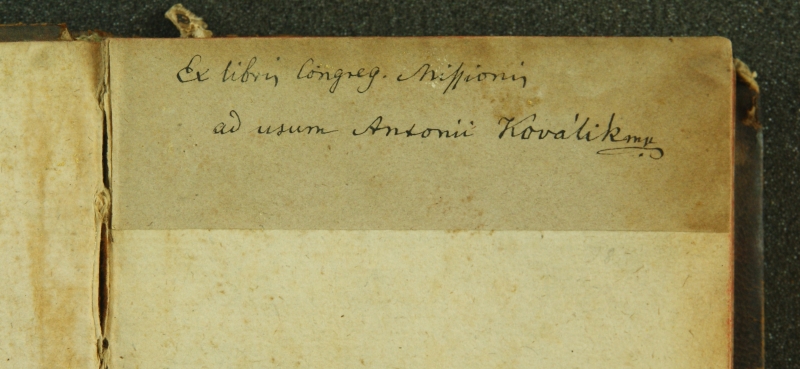 Ex libris Congreg. Missionis
ad usum Antonii Koválik mp